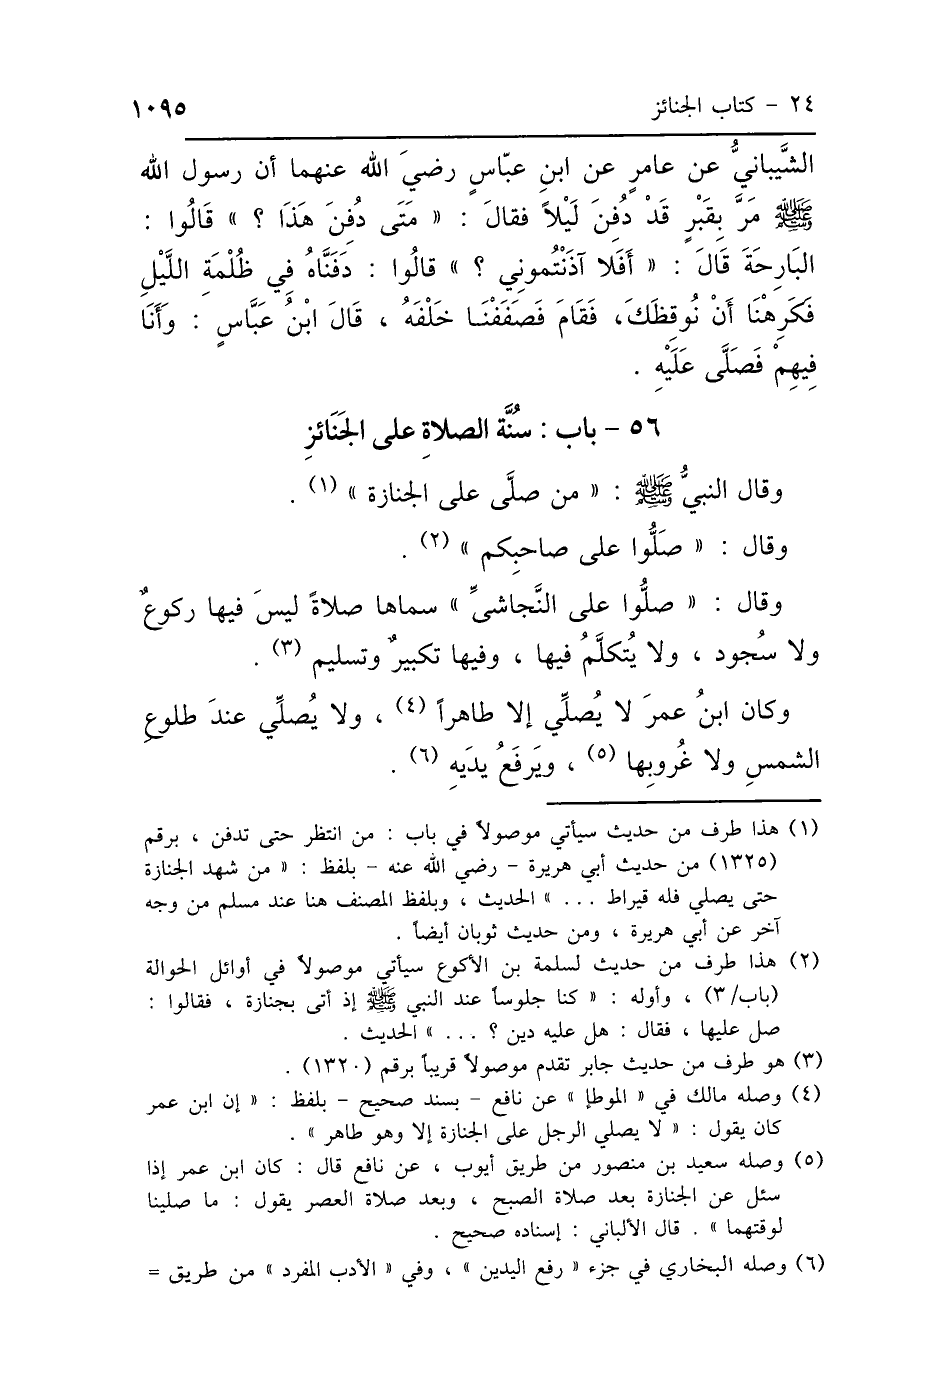 ٢٤ - كتاب الجنائز ١٠٩٥
الشَّيبانيُّ عن عامرٍ عن ابنِ عبّاسٍ رضيَ الله عنهما أن رسول الله
ﷺ مَرَّ بِقَبْرٍ قَدْ دُفِنَ لَيْلاً فقالَ : « مَتَى دُفِنَ هَذَا ؟ » قَالُوا :
البَارِحَةَ قَالَ : « أَفَلا آذَنْتُموني ؟ » قالُوا : دَفَنَّاهُ فِي ظُلْمَةِ اللَّيْلِ
فَكَرِهْنَا أَنْ نُوقِظَكَ، فَقَامَ فَصَفَفْنَا خَلْفَهُ ، قَالَ ابْنُ عَبَّاسٍ : وَأَنَا
فِيهِمْ فَصَلَّى عَلَيْهِ .
٥٦ - باب : سُنَّة الصلاةِ على الجَنَائزِ
وقال النبيُّ ﷺ : « من صلَّى على الجنازة » (١) .
وقال : « صَلُّوا على صاحبِكم » (٢) .
وقال : « صلُّوا على النَّجاشيِّ » سماها صلاةً ليسَ فيها ركوعٌ
ولا سُجود ، ولا يُتكلَّمُ فيها ، وفيها تكبيرٌ وتسليم (٣) .
وكان ابنُ عمرَ لا يُصلِّي إلا طاهراً (٤) ، ولا يُصلِّي عندَ طلوعِ
الشمسِ ولا غُروبِها (٥) ، ويَرفَعُ يدَيهِ (٦) .
(١) هذا طرف من حديث سيأتي موصولاً في باب : من انتظر حتى تدفن ، برقم
(١٣٢٥) من حديث أبي هريرة - رضي الله عنه - بلفظ : « من شهد الجنازة
حتى يصلي فله قيراط ... » الحديث ، وبلفظ المصنف هنا عند مسلم من وجه
آخر عن أبي هريرة ، ومن حديث ثوبان أيضاً .
(٢) هذا طرف من حديث لسلمة بن الأكوع سيأتي موصولاً في أوائل الحوالة
(باب/ ٣) ، وأوله : « كنا جلوساً عند النبي ﷺ إذ أتى بجنازة ، فقالوا :
صل عليها ، فقال : هل عليه دين ؟ ... » الحديث .
(٣) هو طرف من حديث جابر تقدم موصولاً قريباً برقم (١٣٢٠) .
(٤) وصله مالك في « الموطإ » عن نافع - بسند صحيح - بلفظ : « إن ابن عمر
كان يقول : « لا يصلي الرجل على الجنازة إلا وهو طاهر » .
(٥) وصله سعيد بن منصور من طريق أيوب ، عن نافع قال : كان ابن عمر إذا
سئل عن الجنازة بعد صلاة الصبح ، وبعد صلاة العصر يقول : ما صلينا
لوقتهما » . قال الألباني : إسناده صحيح .
(٦) وصله البخاري في جزء « رفع اليدين » ، وفي « الأدب المفرد » من طريق =